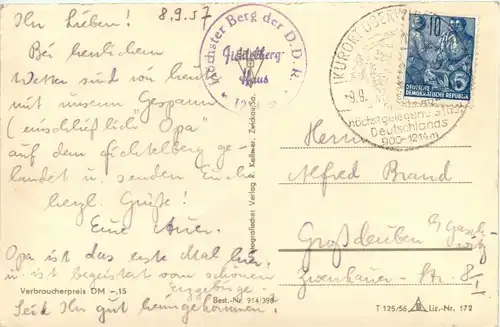 Ihr Lieben! 8.9.57
Bei herrlichem
Wetter sind wir heute
mit unserm Gespann
(einschließlich "Opa"
auf dem Fichtelberg ge-
landet u. senden Euch
herzl. Grüße!
Eure
Opa ist das erste Mal hier
u. ist begeistert vom schönen
Erzgebirge.
Seid Ihr gut heimgekommen?
Verbraucherpreis DM -,15
Best.-Nr. 914/398
Höchster Berg der D.D.R.
Fichtelberg-
Haus
KURORT
9.9.
höchstgelegene Stadt
Deutschlands
900-1214m
10
5
DEUTSCHE
DEMOKRATISCHE REPUBLIK
Verlag R. Kallmer, Zwickau/Sa.
Alfred Brand
Großdeuben
Zwenkauer-Str. 8
T 125/56 Liz.-Nr. 172